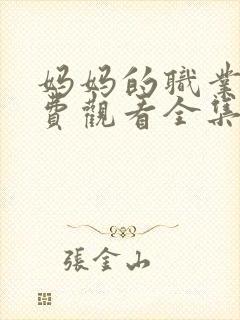 妈妈的職業
費觀看全集
張金山